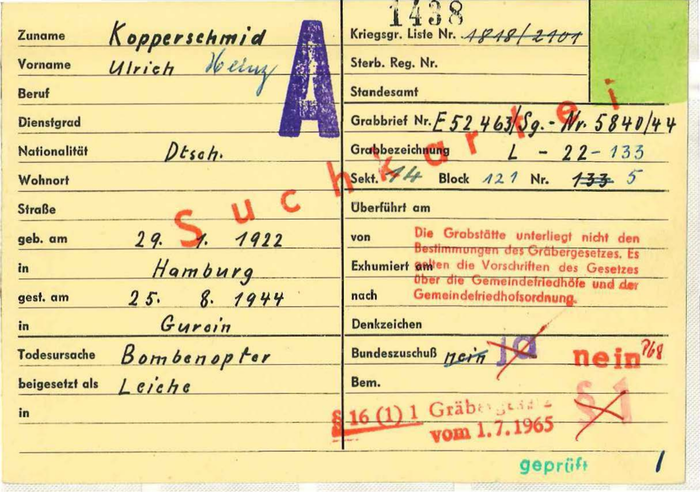 1438
Zuname Kopperschmid
Vorname Ulrich Heinz
Beruf
Dienstgrad
Nationalität Dtsch.
Wohnort
Straße
geb. am 29. 1. 1922
in Hamburg
gest. am 25. 8. 1944
in Gurein
Todesursache Bombenopfer
beigesetzt als Leiche
in
A
Suchkartei
Kriegsgr. Liste Nr. 1818/2101
Sterb. Reg. Nr.
Standesamt
Grabbrief Nr. E52463/Sg.-Nr. 5840/44
Grabbezeichnung L - 22-133
Sekt. 14 Block 121 Nr. 133 5
Überführt am
von
Exhumiert am
nach
Die Grabstätte unterliegt nicht den
Bestimmungen des Gräbergesetzes. Es
gelten die Vorschriften des Gesetzes
über die Gemeindefriedhöfe und der
Gemeindefriedhofsordnung.
Denkzeichen
Bundeszuschuß nein ja nein
Bem.
§ 1
§ 16 (1) 1
vom 1.7.1965
geprüft
1